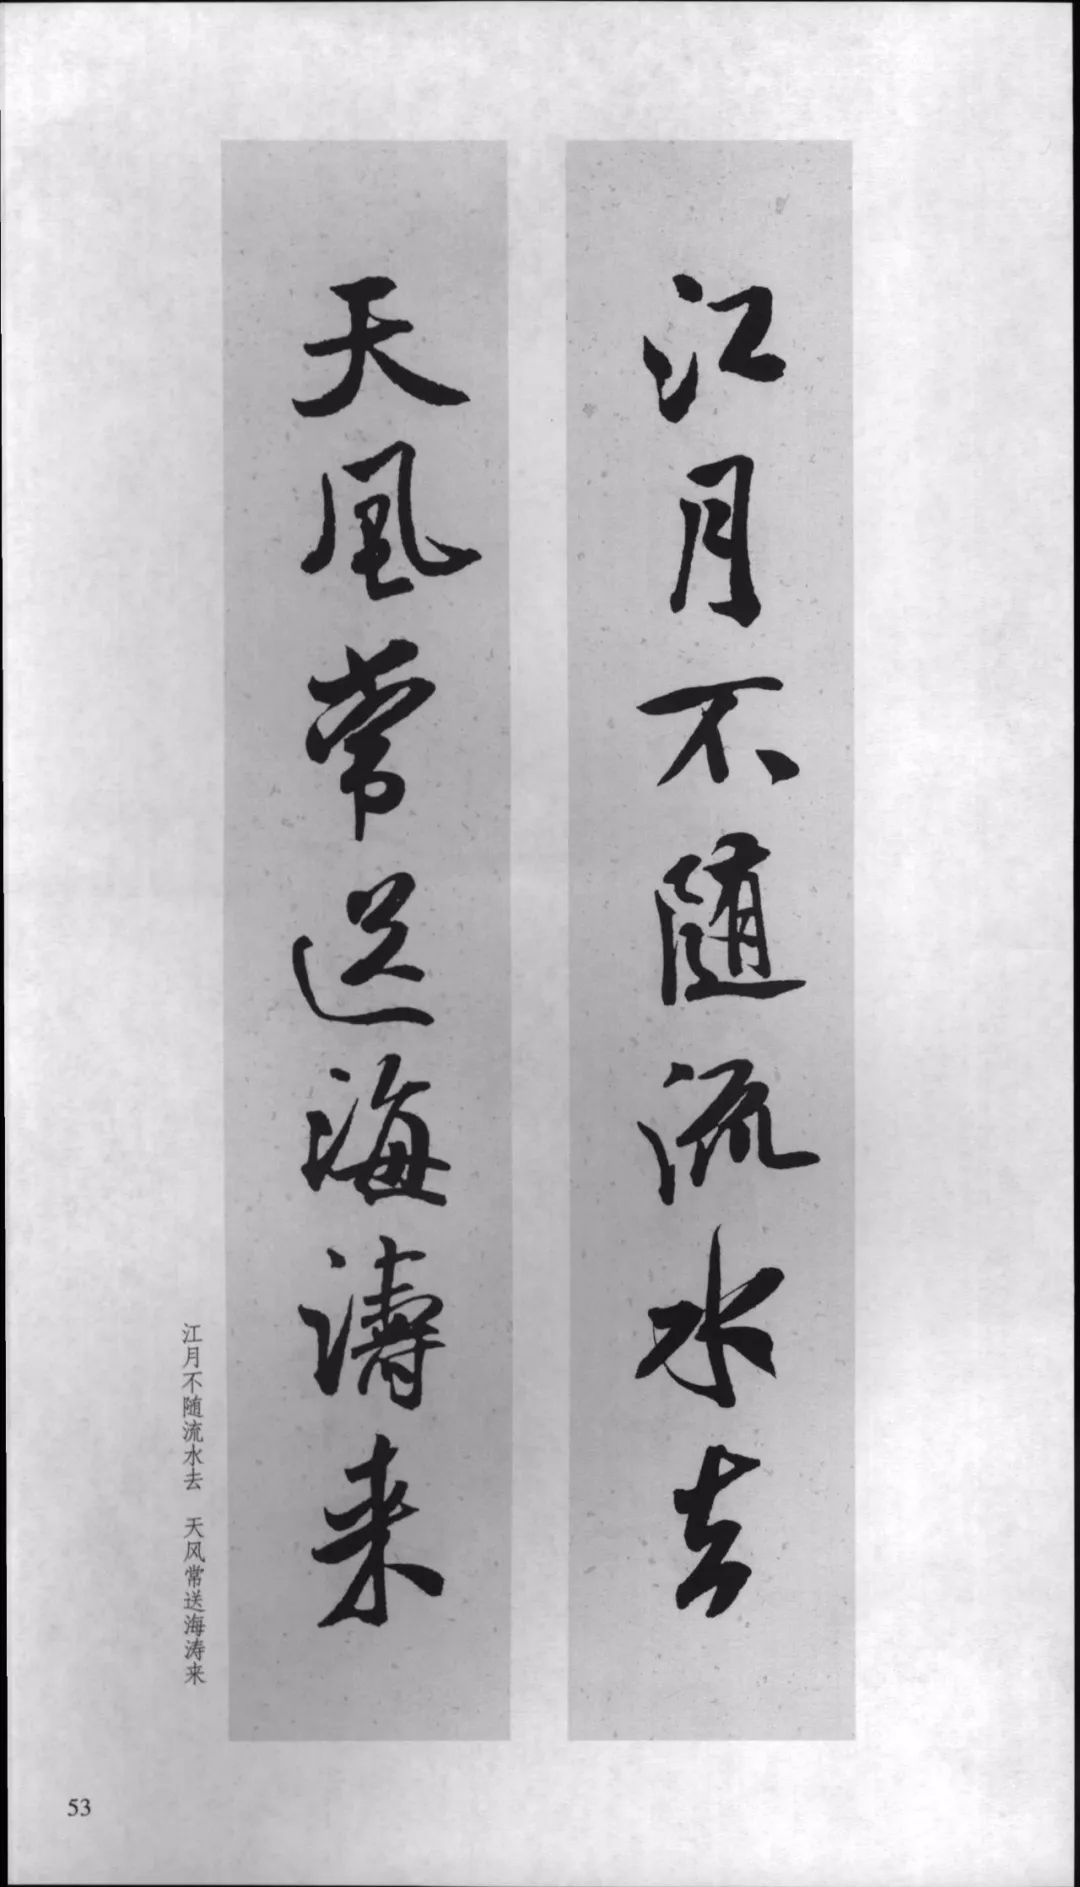 江月不随流水去
天風常送海濤来
江月不随流水去 天风常送海涛来
53